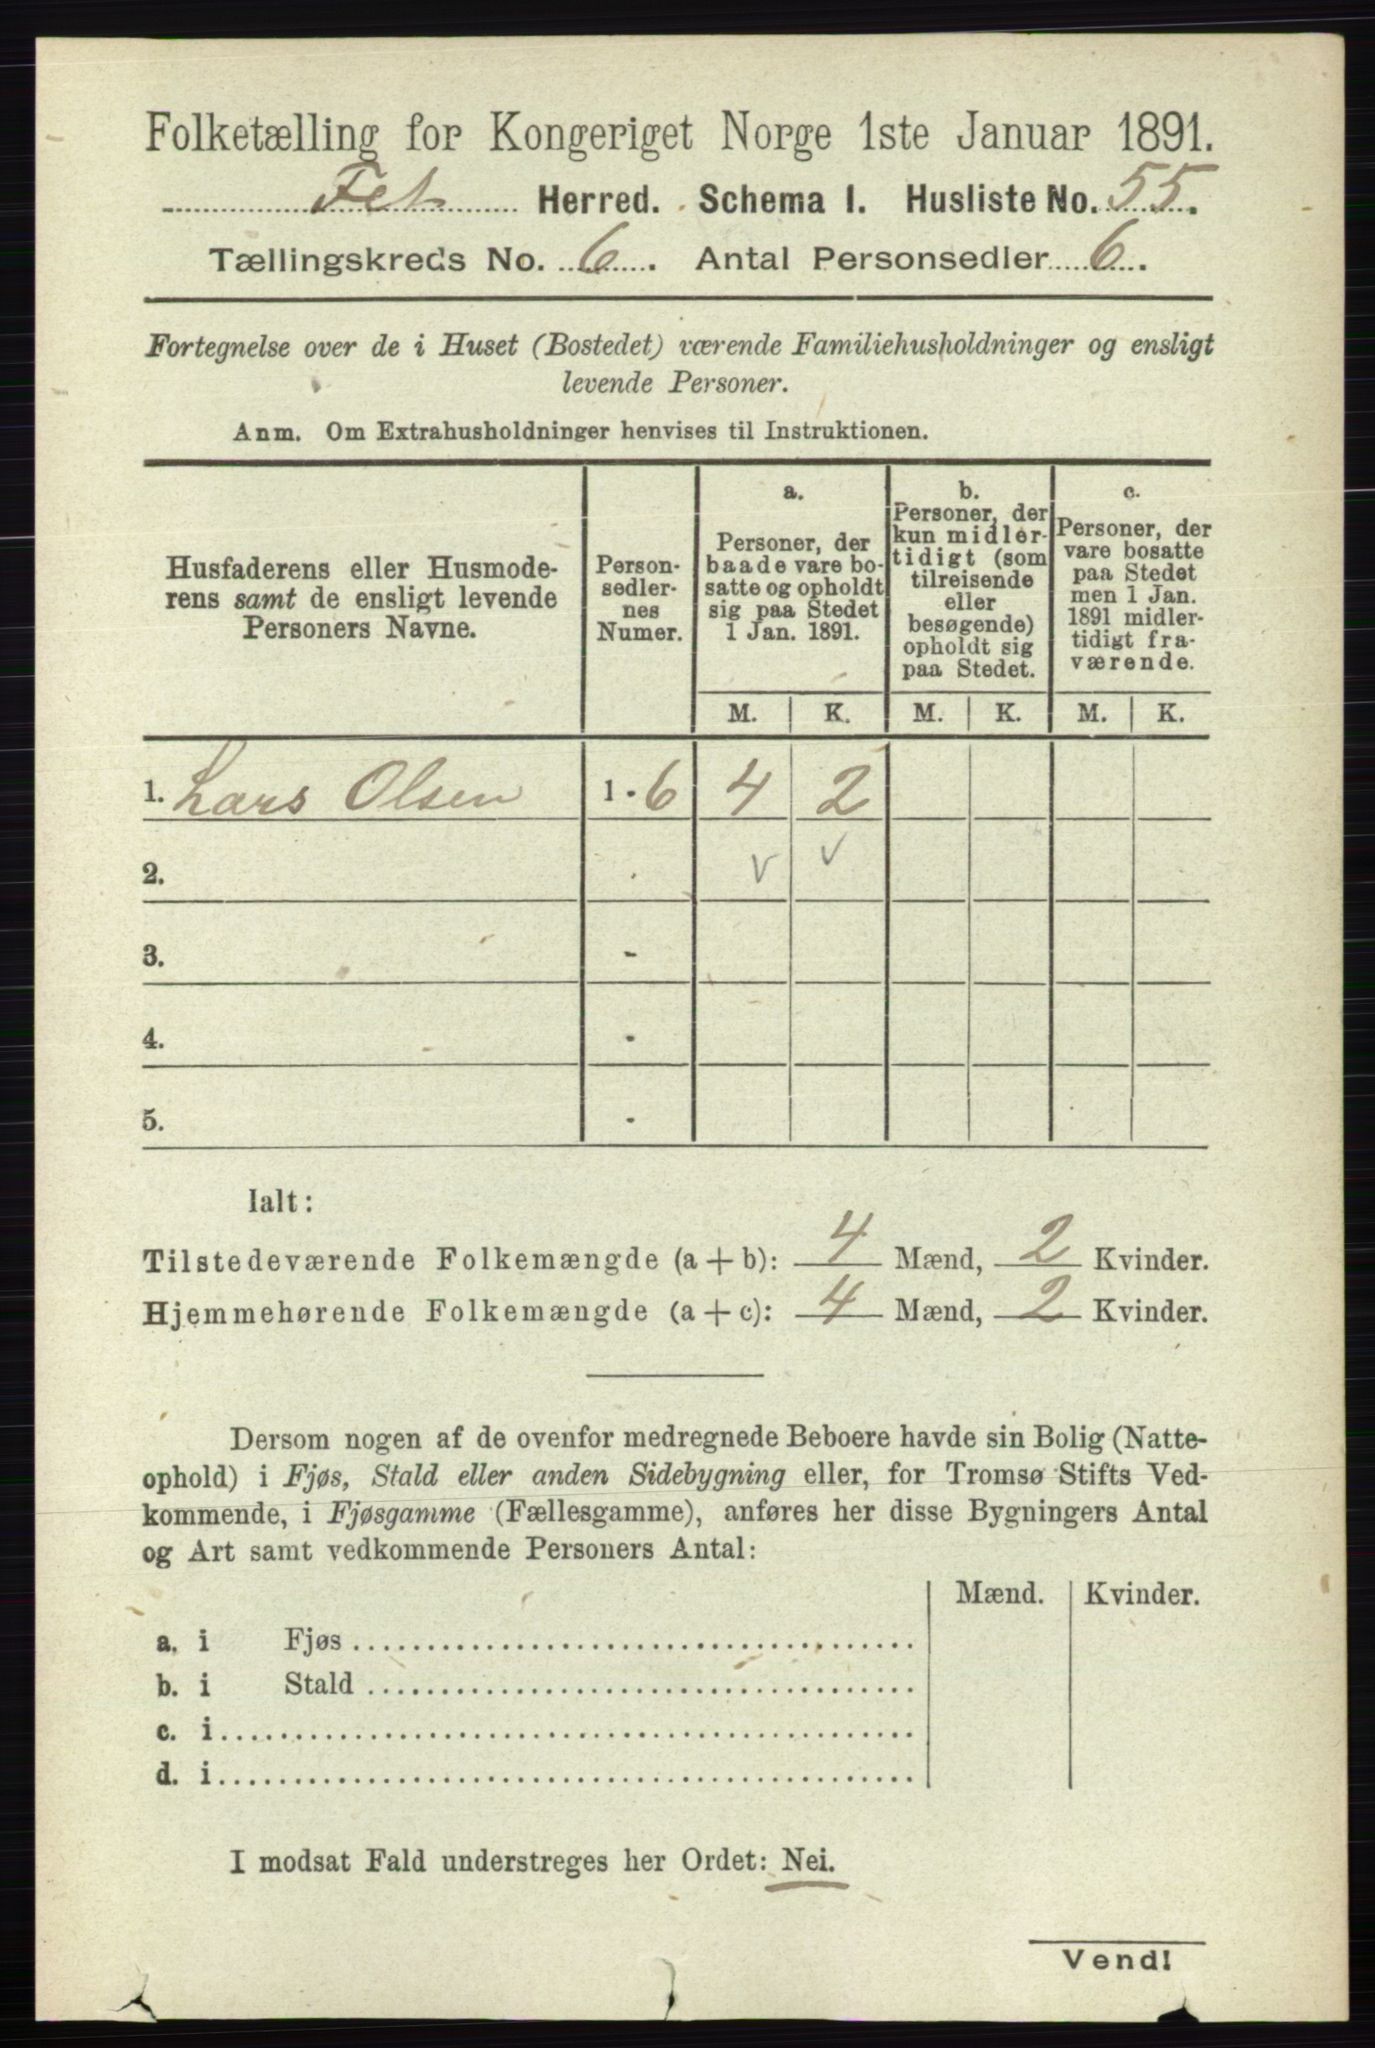 Folketælling for Kongeriget Norge 1ste Januar 1891.
Fet Herred. Schema I. Husliste No. 55.
Tællingskreds No. 6. Antal Personsedler 6.
Fortegnelse over de i Huset (Bostedet) værende Familiehusholdninger og ensligt
levende Personer.
Anm. Om Extrahusholdninger henvises til Instruktionen.
Husfaderens eller Husmode-
rens samt de ensligt levende
Personers Navne.
Person-
sedler-
nes
Numer.
a.
Personer, der
baade vare bo-
satte og opholdt
sig paa Stedet
1 Jan. 1891.
b.
Personer, der
kun midler-
tidigt (som
tilreisende
eller
besøgende)
opholdt sig
paa Stedet.
c.
Personer, der
vare bosatte
paa Stedet
men 1 Jan.
1891 midler-
tidigt fra-
værende.
M. K. M. K. M. K.
1. Lars Olsen 1 - 6 4 2
2. - v v
3. -
4. -
5. -
Ialt:
Tilstedeværende Folkemængde (a + b): 4 Mænd, 2 Kvinder.
Hjemmehørende Folkemængde (a + c): 4 Mænd, 2 Kvinder.
Dersom nogen af de ovenfor medregnede Beboere havde sin Bolig (Natte-
ophold) i Fjøs, Stald eller anden Sidebygning eller, for Tromsø Stifts Ved-
kommende, i Fjøsgamme (Fællesgamme), anføres her disse Bygningers Antal
og Art samt vedkommende Personers Antal:
Mænd. Kvinder.
a. i Fjøs
b. i Stald
c. i
d. i
I modsat Fald understreges her Ordet: Nei.
Vend!